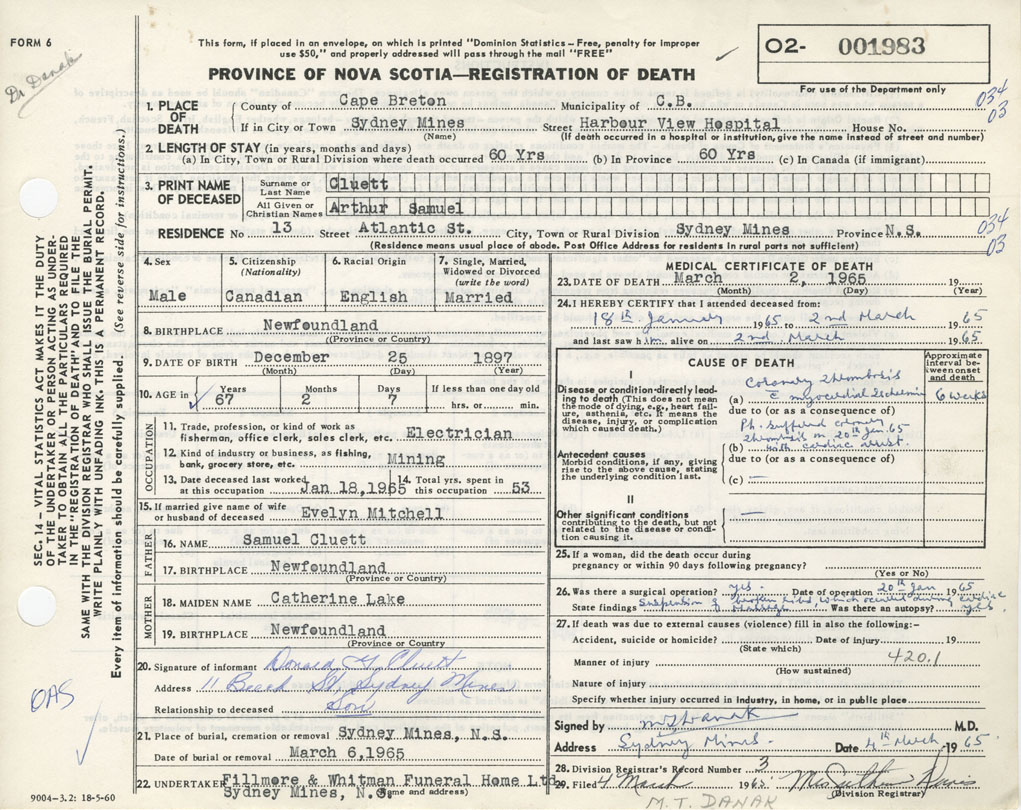 FORM 6
Dr Danak
This form, if placed in an envelope, on which is printed "Dominion Statistics – Free, penalty for improper
use $50," and properly addressed will pass through the mail "FREE"
PROVINCE OF NOVA SCOTIA—REGISTRATION OF DEATH
O2- 001983
For use of the Department only
034
03
1. PLACE OF DEATH
County of Cape Breton Municipality of C.B.
If in City or Town Sydney Mines Street Harbour View Hospital House No.
(Name) (If death occurred in a hospital or institution, give the name instead of street and number)
2. LENGTH OF STAY (in years, months and days)
(a) In City, Town or Rural Division where death occurred 60 Yrs (b) In Province 60 Yrs (c) In Canada (if immigrant)
3. PRINT NAME OF DECEASED
Surname or Last Name Cluett
All Given or Christian Names Arthur Samuel
RESIDENCE No 13 Street Atlantic St. City, Town or Rural Division Sydney Mines Province N.S.
(Residence means usual place of abode. Post Office Address for residents in rural parts not sufficient)
034
03
SEC. 14 – VITAL STATISTICS ACT MAKES IT THE DUTY
OF THE UNDERTAKER OR PERSON ACTING AS UNDER-
TAKER TO OBTAIN ALL THE PARTICULARS REQUIRED
IN THE "REGISTRATION OF DEATH" AND TO FILE THE
SAME WITH THE DIVISION REGISTRAR WHO SHALL ISSUE THE BURIAL PERMIT.
WRITE PLAINLY WITH UNFADING INK. THIS IS A PERMANENT RECORD.
Every item of information should be carefully supplied. (See reverse side for instructions.)
4. Sex
Male
5. Citizenship
(Nationality)
Canadian
6. Racial Origin
English
7. Single, Married,
Widowed or Divorced
(write the word)
Married
8. BIRTHPLACE Newfoundland
(Province or Country)
9. DATE OF BIRTH December 25 1897
(Month) (Day) (Year)
10. AGE in Years 67 Months 2 Days 7 If less than one day old
hrs. or min.
OCCUPATION
11. Trade, profession, or kind of work as
fisherman, office clerk, sales clerk, etc. Electrician
12. Kind of industry or business, as fishing,
bank, grocery store, etc. Mining
13. Date deceased last worked
at this occupation Jan 18, 1965
14. Total yrs. spent in
this occupation 53
15. If married give name of wife
or husband of deceased Evelyn Mitchell
FATHER
16. NAME Samuel Cluett
17. BIRTHPLACE Newfoundland
(Province or Country)
MOTHER
18. MAIDEN NAME Catherine Lake
19. BIRTHPLACE Newfoundland
(Province or Country
20. Signature of informant Donald G. Cluett
Address 11 Beech St, Sydney Mines
Relationship to deceased Son
21. Place of burial, cremation or removal Sydney Mines, N.S.
Date of burial or removal March 6, 1965
22. UNDERTAKER Fillmore & Whitman Funeral Home Ltd
Sydney Mines, N.S.
(Name and address)
OAS
9004–3.2: 18-5-60
MEDICAL CERTIFICATE OF DEATH
23. DATE OF DEATH March 2, 1965 19
(Month) (Day) (Year)
24. I HEREBY CERTIFY that I attended deceased from:
18th January 1965 to 2nd March 1965
and last saw him alive on 2nd March 1965
CAUSE OF DEATH
Approximate
interval be-
tween onset
and death
I
Disease or condition directly lead-
ing to death (This does not mean
the mode of dying, e.g., heart fail-
ure, asthenia, etc. It means the
disease, injury, or complication
which caused death.)
Coronary Thrombosis
(a) c̄ myocardial Ischemia 6 weeks
due to (or as a consequence of)
Pt. suffered coronary
thrombosis on 20th Jan. 65
(b) with cardiac arrest.
due to (or as a consequence of)
(c)
Antecedent causes
Morbid conditions, if any, giving
rise to the above cause, stating
the underlying condition last.
II
Other significant conditions
contributing to the death, but not
related to the disease or condi-
tion causing it.
25. If a woman, did the death occur during
pregnancy or within 90 days following pregnancy?
(Yes or No)
26. Was there a surgical operation? yes. Date of operation 20th Jan 1965
State findings which occurred during cardiac Was there an autopsy? yes.
27. If death was due to external causes (violence) fill in also the following:–
Accident, suicide or homicide? Date of injury 19
(State which)
Manner of injury 420.1
(How sustained)
Nature of injury
Specify whether injury occurred in industry, in home, or in public place
Signed by M T Danak M.D.
Address Sydney Mines. Date 4th March 1965
28. Division Registrar's Record Number 3
29. Filed 4 March 1965
(Division Registrar)
M.T. DANAK